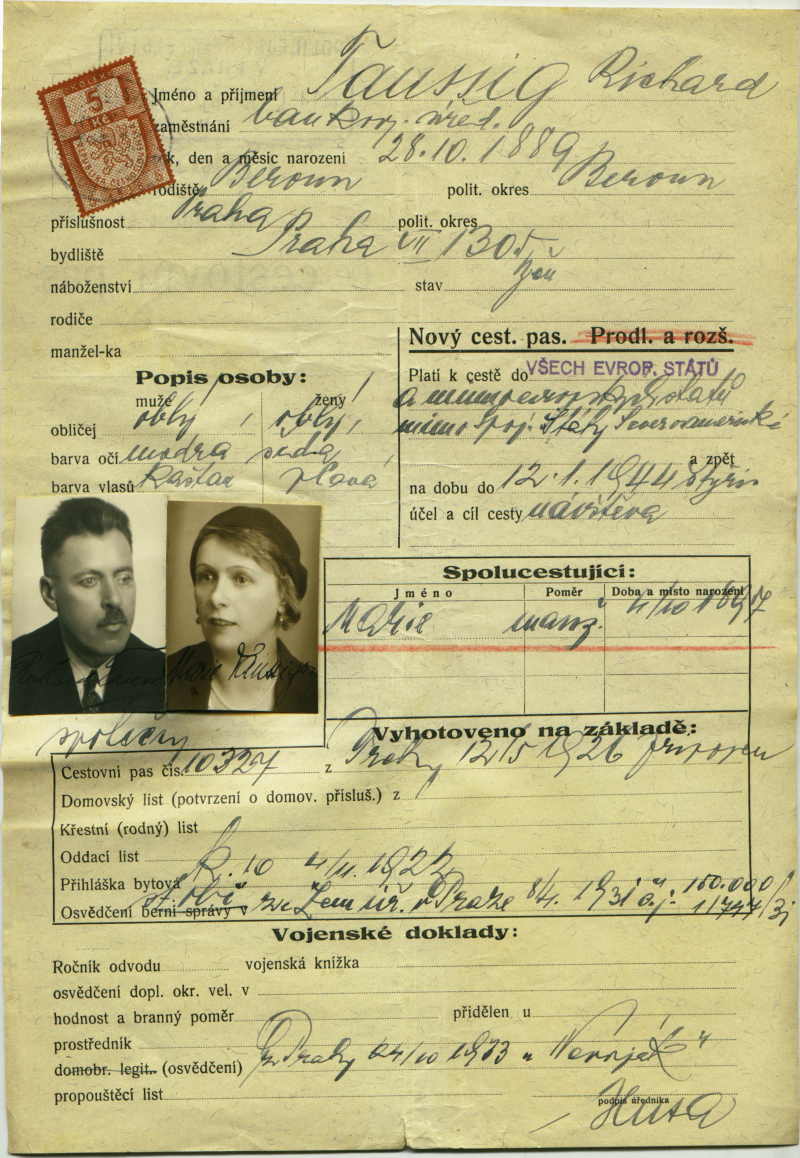 5
Jméno a příjmení Taussig Richard
zaměstnání bankov. úřed.
k, den a měsíc narození 28.10.1889
rodiště Beroun polit. okres Beroun
příslušnost Praha polit. okres
bydliště Praha VII 1305
náboženství stav žen
rodiče
manžel-ka
Nový cest. pas. Prodl. a rozš.
Platí k cestě do VŠECH EVROP. STÁTŮ
a mimoevropských států
mimo Spoj. Státy Severoamerické
a zpět
na dobu do 12.1.1944
účel a cíl cesty návštěva
Popis osoby:
muže ženy
obličej oblý oblý
barva očí modrá šedá
barva vlasů kaštan plavá
Spolucestující:
Jméno Poměr Doba a místo narození
Marie manž. 4/10 1897
Marie Taussigová
společný
Vyhotoveno na základě:
Cestovní pas čís. 10327 z Prahy 12/5 1926
Domovský list (potvrzení o domov. přísluš.) z
Křestní (rodný) list
Oddací list
Přihláška bytová
Osvědčení berní správy v ze Zem. úř. v Praze 8/4. 1931 č.j. 150.000
Vojenské doklady:
Ročník odvodu vojenská knížka
osvědčení dopl. okr. vel. v
hodnost a branný poměr přidělen u
prostředník
domobr. legit. (osvědčení) z Prahy
propouštěcí list
podpis úředníka